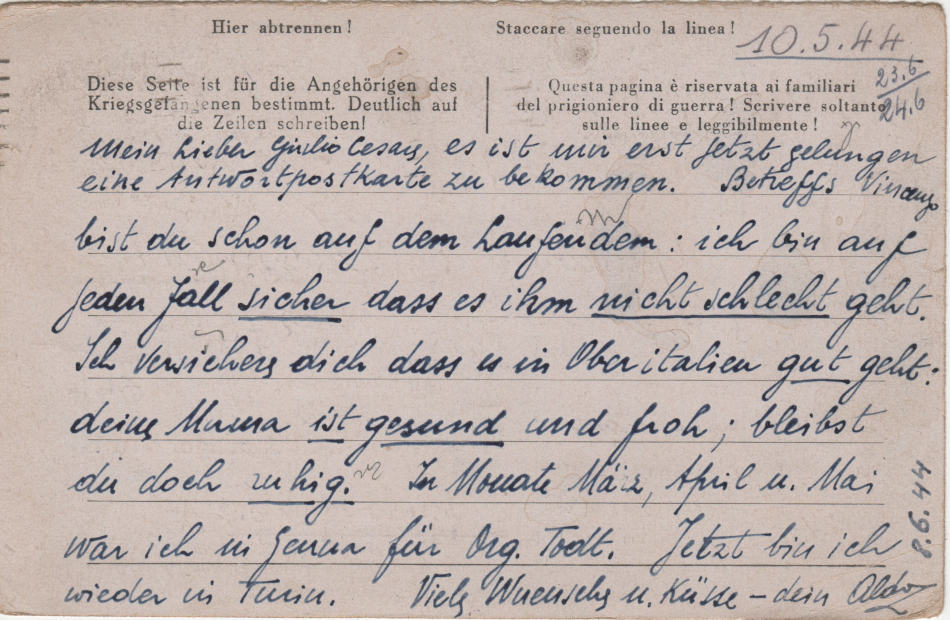 Hier abtrennen!
Staccare seguendo la linea!
10.5.44
23.6
24.6
Diese Seite ist für die Angehörigen des
Kriegsgefangenen bestimmt. Deutlich auf
die Zeilen schreiben!
Questa pagina è riservata ai familiari
del prigioniero di guerra! Scrivere soltanto
sulle linee e leggibilmente!
Mein Lieber Giulio Cesare, es ist mir erst Jetzt gelungen
eine Antwortpostkarte zu bekommen. Betreffs Vincenzo
bist du schon auf dem Laufendem: ich bin auf
jeden Fall sicher dass es ihm nicht schlecht geht.
Ich versichere dich dass es in Oberitalien gut geht:
deine Mama ist gesund und froh; bleibst
du doch ruhig. In Monate März, April u. Mai
war ich in Genua für Org. Todt. Jetzt bin ich
wieder in Turin. Viele Wuensche u. Küsse – dein Aldo
8.6.44